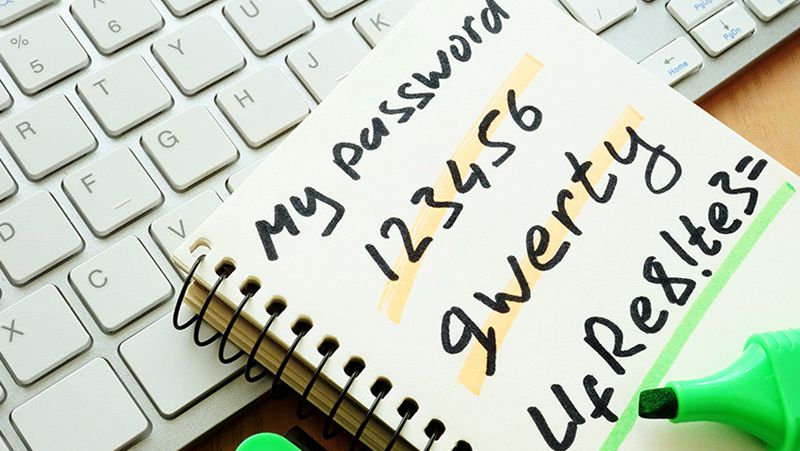 My password
123456
qwerty
UfRe8!te3=
6
%
5
Y
U
T
J
K
R
H
G
F
D
V
C
X
PgUp
PgDn
Home